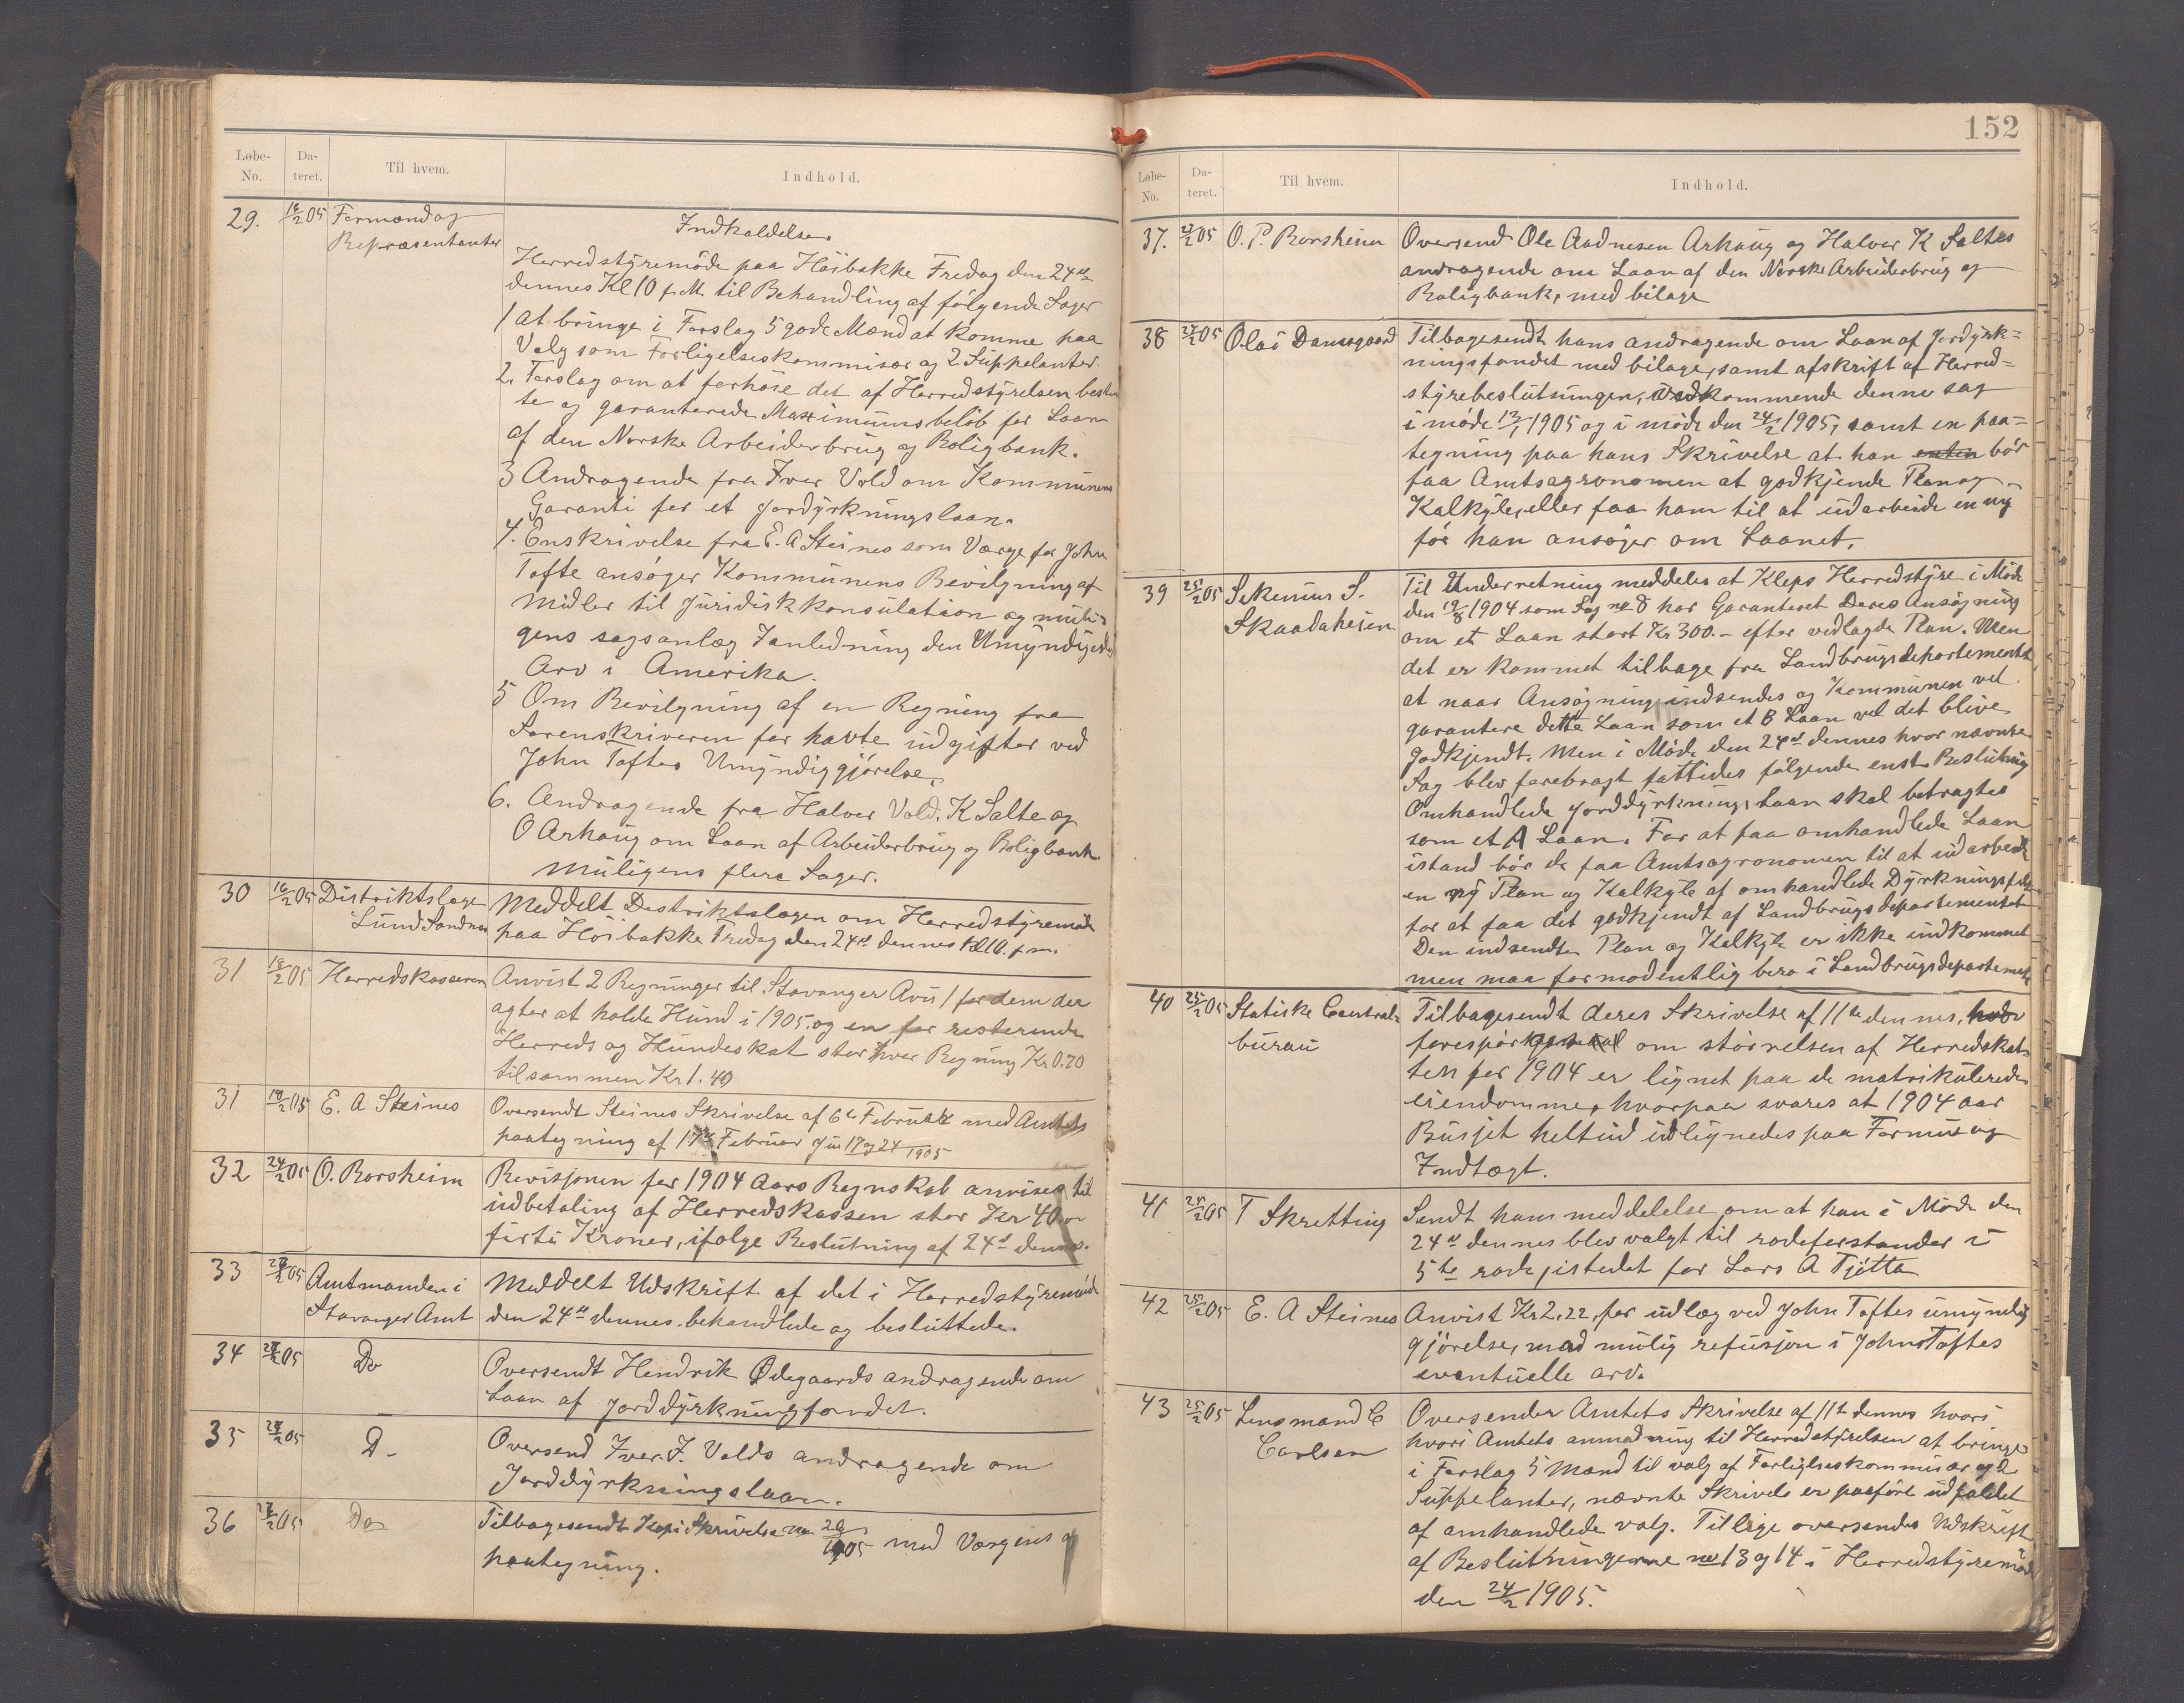 Løbe-No. Da-teret. Til hvem. Indhold.
29. 16/2 05 Formænd og Repræsentanter
Indkaldelse
Herredstyremøde paa Høibakke Fredag den 24de
dennes Kl 10 f.M. til Behandling af følgende Sager
1 at bringe i Forslag 5 gode Mænd at komme paa
Valg som Forligelseskommisær og 2 Suppelanter.
2. Forslag om at forhøie det af Herredstyrelsen bestem
te og garanterede Maximumsbeløb for Laan
af den Norske Arbeiderbrug og Boligbank.
3 Andragende fra Iver Vold om Kommunens
Garanti for et Jordyrkningslaan.
4. En skrivelse fra E. A Steines som Værge for John
Tofte ansøger Kommunens Bevilgning af
Midler til Juridisk konsulation og muli-
gens sagsanlæg Ianledning den Umyndiges
Arv i Amerika.
5 Om Bevilgning af en Regning fra
Sorenskriveren for havte udgifter ved
John Toftes Umyndiggjørelse.
6. Andragende fra Halvor Vold, K Salte og
O Arhaug om Laan af Arbeiderbrug og Boligbank.
Muligens flere Sager.
30 16/2 05 Distriktslæge Lund Sandnes
Meddelt Destriktslægen om Herredstyremøde
paa Høibakke Fredag den 24de dennes Kl 10. f.m.
31 18/2 05 Herredskassereren
Anvist 2 Regninger til Stavanger Avis 1 for dem der
agter at holde Hund i 1905. og en for resterende
Herreds og Hundeskat stor hver Regning Kr 0.70
tilsammen Kr 1. 40
31 18/2 05 E. A Steines
Oversendt Steines Skrivelse af 6te Februar med Amtets
paategning af 17de Februar Jn 17 og 24/1905
32 24/2 05 O. Borsheim
Revisjonen for 1904 Aars Regnskab anvises til
udbetaling af Herredskassen stor Kr 40.00
førti Kroner, ifølge Beslutning af 24de dennes.
33 05 Amtmanden i Stavanger Amt
Meddelt Udskrift af det i Herredstyremøde
den 24de dennes behandlede og besluttede.
34 05 Do
Oversendt Hendrik Ødegaards andragende om
Laan af Jorddyrkningsfondet.
35 05 D-
Oversend Iver I. Volds andragende om
Jorddyrkningslaan.
36 05 Do
Tilbagesendt Kopi Skrivelse 1905 med Værgens
paategning.
152
Løbe-No. Da-teret. Til hvem. Indhold.
37. 27/2 05 O. P. Borsheim
Oversend Ole Aadnesen Arhaug og Halvor K Saltes
andragende om Laan af den Norske Arbeiderbrug og
Boligbank, med bilage
38 27/2 05 Olai Damsgaard
Tilbagesendt hans andragende om Laan af Jordyrk=
ningsfondet med bilage, samt afskrift af Herred=
styrebeslutningen, vedkommende denne sag
i møde 13/1 1905 og i møde den 24/2 1905, samt en paa=
tegning paa hans Skrivelse at han enten bør
faa Amtsagronomen at godkjende Plan og
Kalkyle, eller faa ham til at udarbeide en ny
før han ansøger om Laanet.
39 25/2 05 Sekunius S. Skaadaheien
Til Underretning meddeles at Klepp Herredstyre i Møde
den 19/8 1904 som Sag no 8 har Garanteret Deres Ansøgning
om et Laan stort Kr 300.- efter vedlagde Plan. Men
det er kommet tilbage fra Landbrugsdepartementet
at naar Ansøgning indsendes og Kommunen vil
garantere dette Laan som et B Laan vil det blive
godkjendt. Men i Møde den 24de dennes hvor nævnte
Sag blev forebragt fattedes følgende enst. Beslutning
Omhandlede Jorddyrknings Laan skal betragtes
som et A Laan. For at faa omhandlede Laan
istand bør de faa Amtsagronomen til at udarbeide
en ny Plan og Kalkyle af omhandlede Dyrkningsfelt
for at faa det godkjendt af Landbrugsdepartementet
Den indsendte Plan og Kalkyle er ikke indkommet
men maa formodentlig bero i Landbrugsdepartementet
40 25/2 05 Statiske Centralbureau
Tilbagesendt deres Skrivelse af 11te dennes, hvor
forespørges om størrelsen af Herredskat-
ten for 1904 er lignet paa de matrikulerede
eiendomme, hvorpaa svares at 1904 aar
Busjet heltud udlignedes paa Formue og
Indtægt.
41 25/2 05 T Skretting
Sendt ham meddelelse om at han i Møde den
24de dennes blev valgt til rodeforstander i
5te rode istedet for Lars A Tjøtta
42 25/2 05 E. A Steines
Anvist Kr 2,22, for udlæg ved John Toftes umyndig
gjørelse, mod mulig refusjon i John Toftes
eventuelle arv.
43 25/2 05 Lensmand C Carlsen
Oversender Amtets Skrivelse af 11te dennes hvori
hvori Amtets anmodning til Herredstyrelsen at bringe
i Forslag 5 Mænd til valg af Forligelseskommisær og 2
Suppelanter, nævnte Skrivelse er paaført udfaldet
af omhandlede valg. Tillige oversendes Udskrift
af Beslutningerne no 13 og 14 i Herredstyremøde
den 24/2 1905.